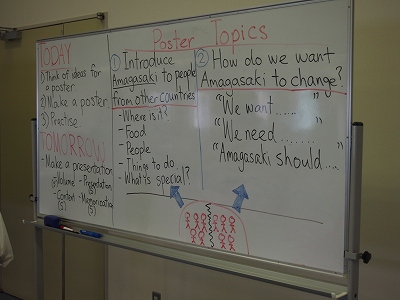 Poster Topics
TODAY
1) Think of ideas for
a poster
2) Make a poster
3) Practise
TOMORROW
- Make a presentation
(5) Volume - Presentation
(5)
- Content - Memorization
(5) (5)
① Introduce
Amagasaki to people
from other countries
- Where is it?
- Food
- People
- Things to do
- What is special?
② How do we want
Amagasaki to change?
"We want ...... "
"We need ....... "
"Amagasaki should ....